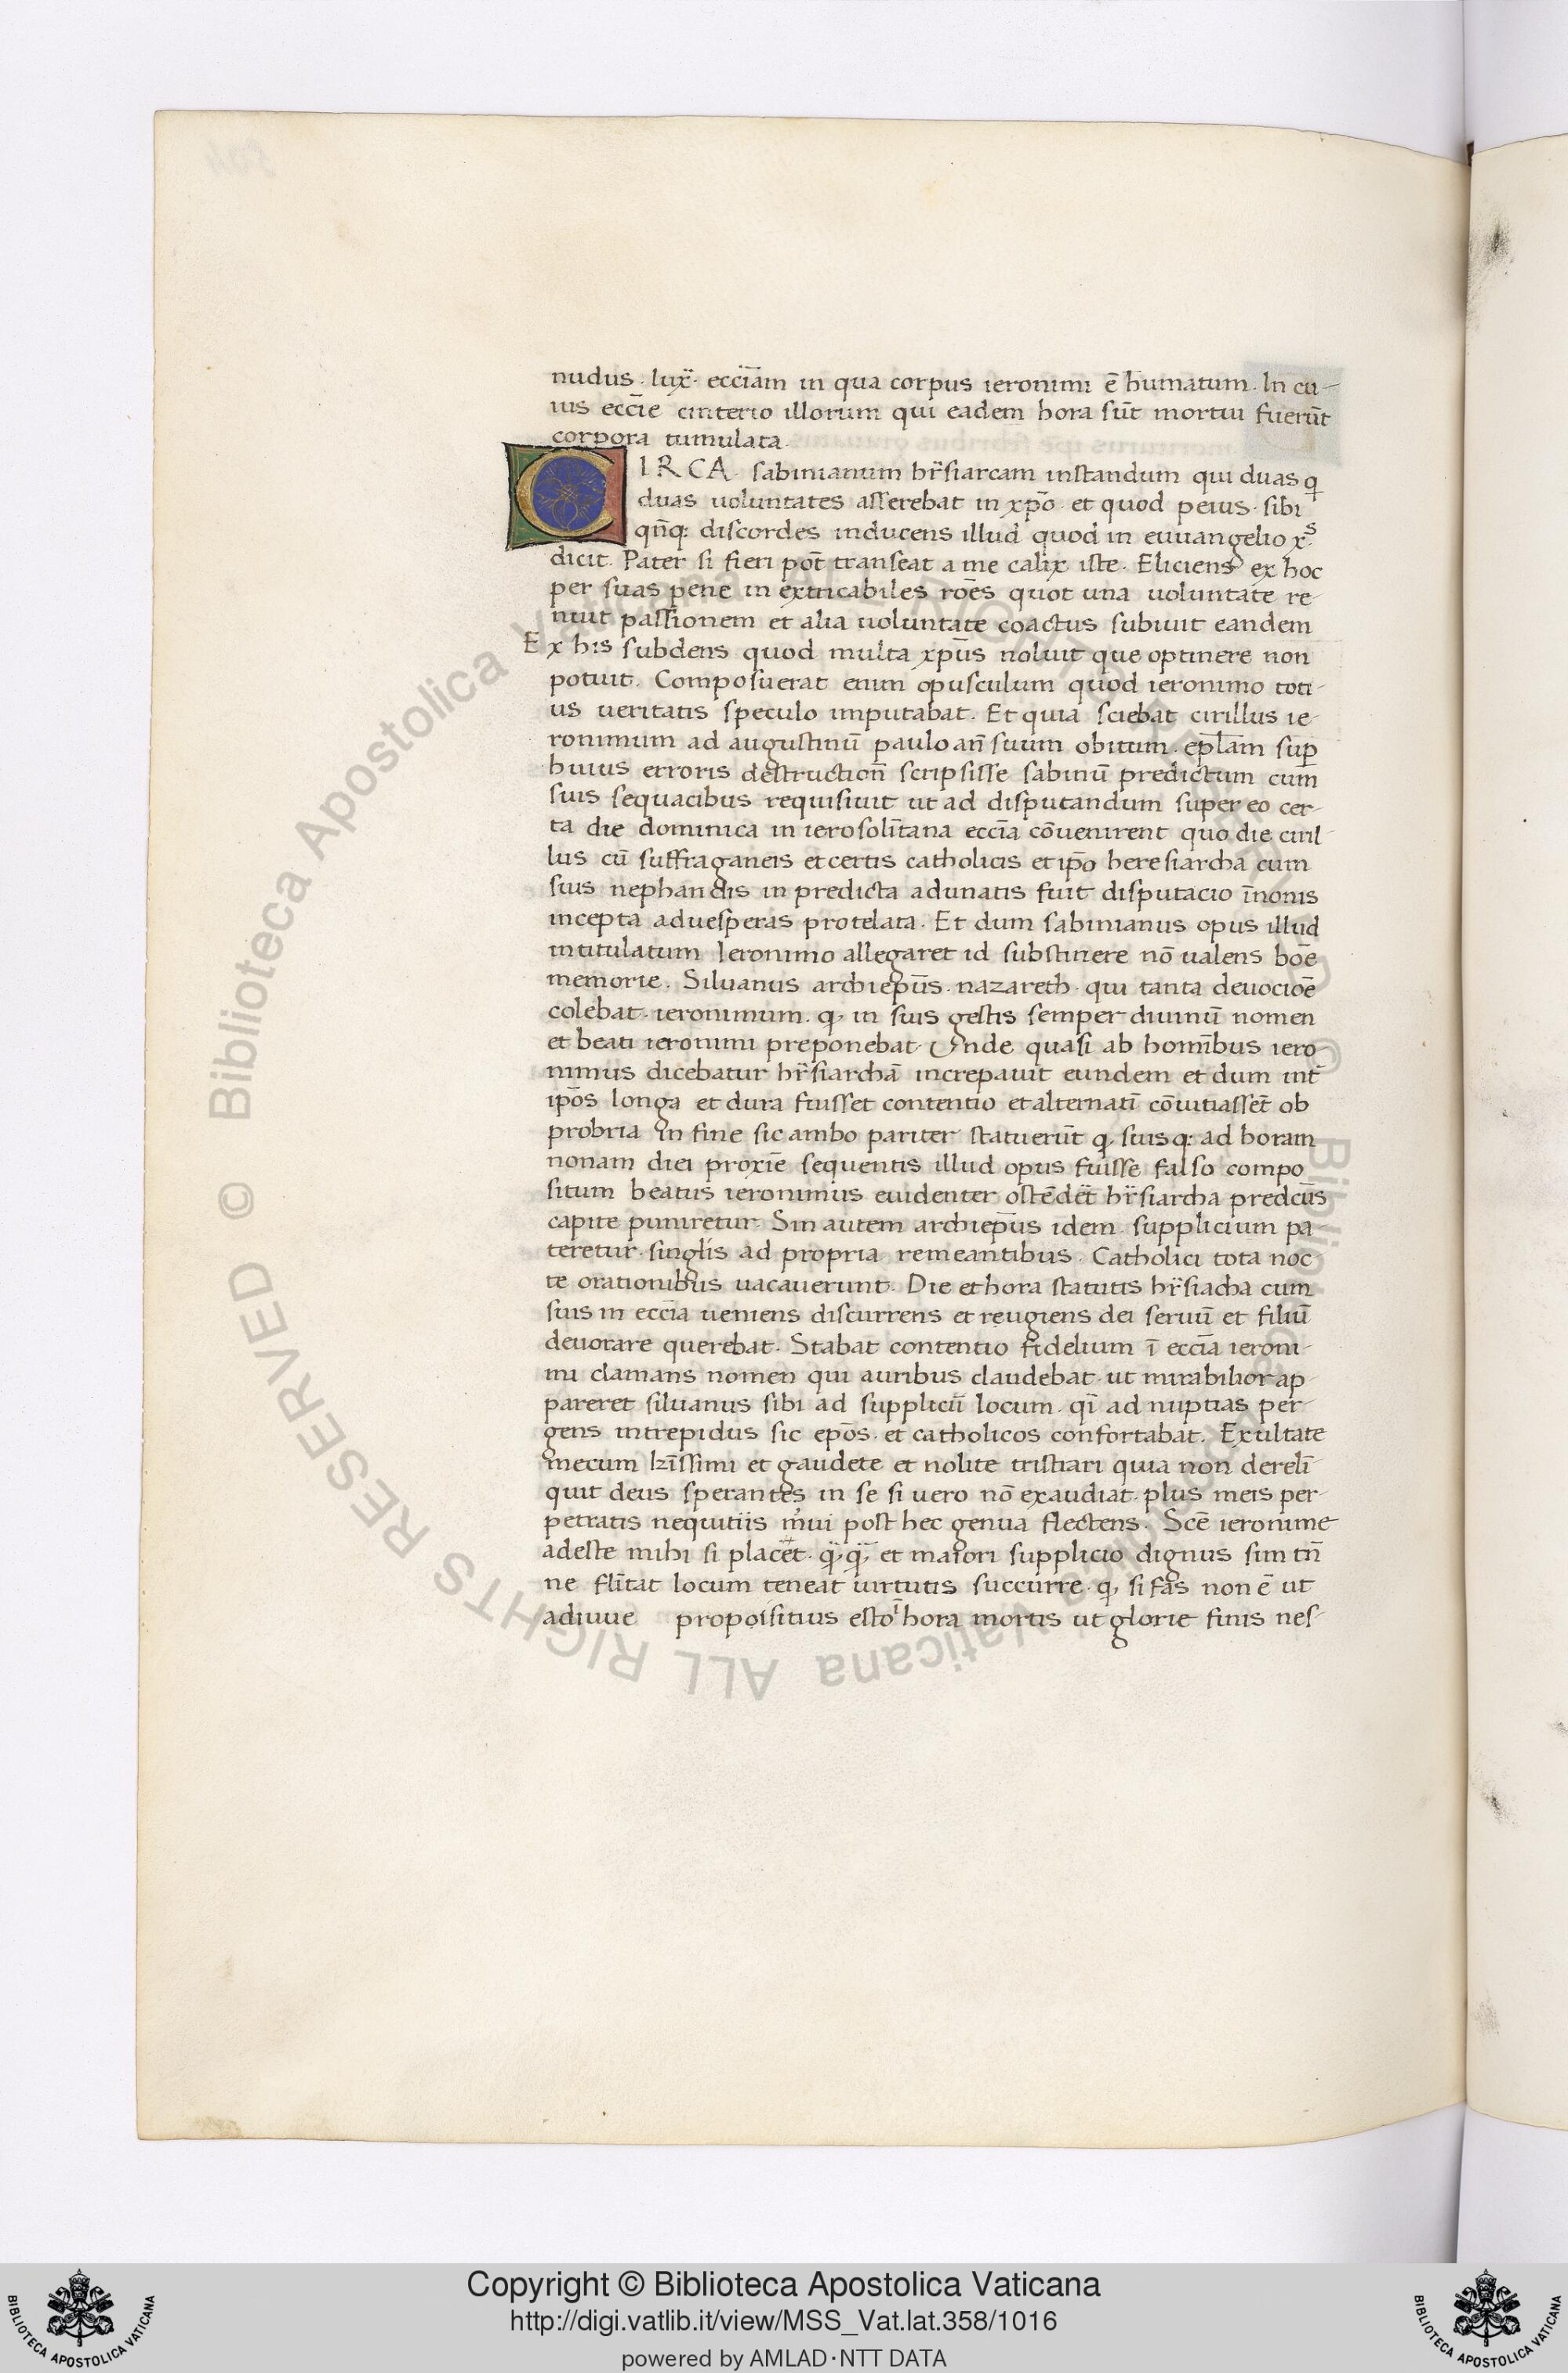 nudus · iux̄ · eccl̄iam in qua corpus ieronimi ē humatum · In cu-
ius eccl̄ie cimterio illorum qui eadem hora sūt mortui fuerūt
corpora tumulata ·
CIRCA sabinianum hr̄siarcam instandum qui duas q̄
duas uoluntates asserebat in xp̄o · et quod peius · sibi
qn̄q; discordes inducens illud quod in euuangelio x.s
dicit. Pater si fieri pōt transeat a me calix iste. Eliciens ex hoc
per suas pene in extricabiles rōes quot una uoluntate re-
nuit passionem et alia uoluntate coactus subiuit eandem
Ex his subdens quod multa xp̄us noluit que optinere non
potuit. Composuerat enim opusculum quod ieronimo toti-
us ueritatis speculo imputabat. Et quia sciebat cirillus ie-
ronimum ad augustinū paulo an̄ suum obitum · ep̄lam sup̄
huius erroris destruction̄ scripsisse sabinū predictum cum
suis sequacibus requisiuit ut ad disputandum super eo cer-
ta die dominica in ierosolītana eccīa cōuenirent quo die ciril-
lus cū suffraganeis et certis catholicis et ip̄o heresiarcha cum
suis nephandis in predicta adunatis fuit disputacio īnonis
incepta aduesperas protelata. Et dum sabinianus opus illud
intitulatum Ieronimo allegaret id substinere nō ualens boē
memorie. Siluanus archiep̄us · nazareth · qui tanta deuocioē
colebat · ieronimum · q, in suis gestis semper diuinū nomen
et beati ieronimi preponebat · Unde quasi ab homībus iero-
nimus dicebatur hr̄siarchā increpauit eundem et dum int̄
ip̄os longa et dura fuisset contentio et alternatī cōuitiasset̄ ob
probria In fine sic ambo pariter statuerūt q, suisq; ad horam
nonam diei proxīe sequentis illud opus fuisse falso compo
situm beatus ieronimus euidenter ostēdēt hr̄siarcha predcūs
capite puniretur · Sin autem archiep̄us idem supplicium pa-
teretur · singlis ad propria remeantibus · Catholici tota noc-
te orationibus uacauerunt. Die et hora statutis hr̄siacha cum
suis in eccīa ueniens discurrens et reugiens dei seruū et filiū
deuorare querebat. Stabat contentio fidelium ī eccīa ieroni-
mi clamans nomen qui auribus claudebat · ut mirabilior ap-
pareret siluanus sibi ad supplicii locum · qī ad nuptias per-
gens intrepidus sic ep̄os · et catholicos confortabat. Exultate
mecum kr̄issimi et gaudete et nolite tristiari quia non derelī-
quit deus sperantes in se si uero nō exaudiat · plus meis per-
petratis nequitiis m̄ui post hec genua flectens. Scē ieronime
adeste mihi si placēt · q̄,q̄, et maiori supplicio dignus sim tn̄
ne fl̄itat locum teneat uirtutis succurre · q, si fas non ē ut
adiuue propoisitius esto ī hora mortis ut glorie finis nes-
© Biblioteca Apostolica Vaticana ALL RIGHTS RESERVED
Copyright © Biblioteca Apostolica Vaticana
http://digi.vatlib.it/view/MSS_Vat.lat.358/1016
powered by AMLAD·NTT DATA
BIBLIOTECA APOSTOLICA VATICANA
BIBLIOTECA APOSTOLICA VATICANA